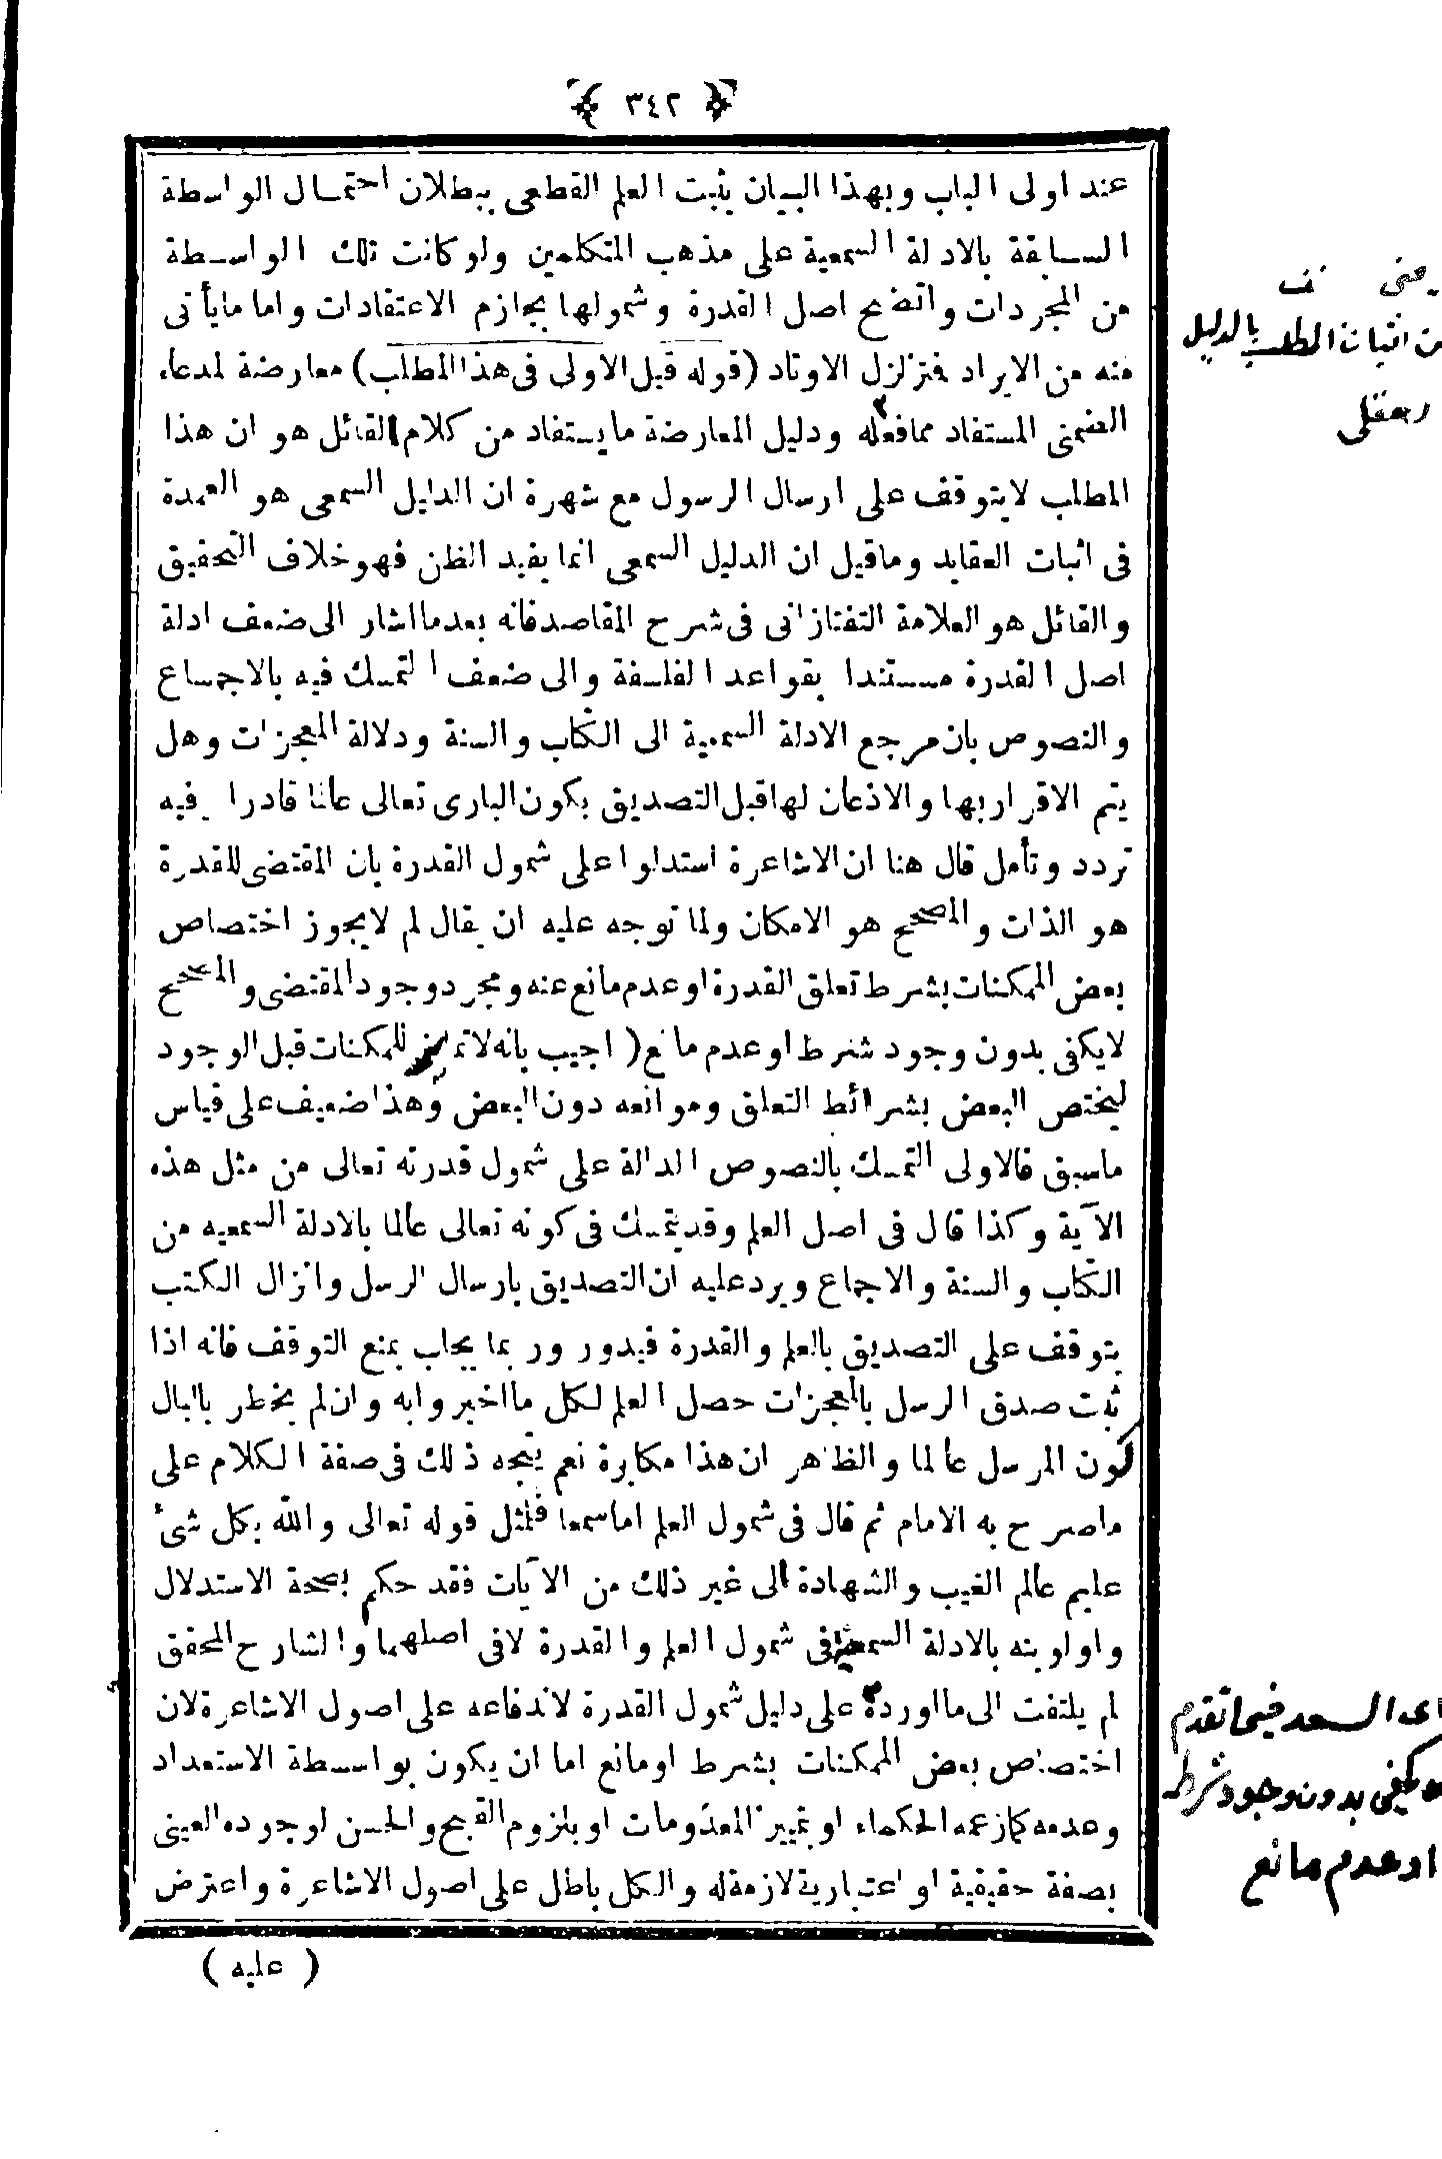 ﴿ ٣٤٢ ﴾
عند اولى الباب وبهذا البيان يثبت العلم القطعى ببطلان احتمال الواسطة
السابقة بالادلة السمعية على مذهب المتكلمين ولو كانت تلك الواسطة
من المجردات واتضح اصل القدرة وشمولها بجازم الاعتقادات واما مايأتى
منه من الايراد فتزلزل الاوتاد (قوله قيل الاولى فى هذا المطلب) معارضة لمدعاه
الضمنى المستفاد ممافعله ودليل المعارضة مايستفاد من كلام القائل هو ان هذا
المطلب لايتوقف على ارسال الرسول مع شهرة ان الدليل السمعى هو العمدة
فى اثبات العقايد وماقيل ان الدليل السمعى انما يفيد الظن فهو خلاف التحقيق
والقائل هو العلامة التفتازانى فى شرح المقاصد فانه بعدما اشار الى ضعف ادلة
اصل القدرة مستندا بقواعد الفلسفة والى ضعف التمسك فيه بالاجماع
والنصوص بان مرجع الادلة السمعية الى الكتاب والسنة ودلالة المعجزات وهل
يتم الاقرار بها والاذعان لها قبل التصديق بكون البارى تعالى عالما قادرا فيه
تردد وتأمل قال هنا ان الاشاعرة استدلوا على شمول القدرة بان المقتضى للقدرة
هو الذات والمصحح هو الامكان ولما توجه عليه ان يقال لم لايجوز اختصاص
بعض الممكنات بشرط تعلق القدرة او عدم مانع عنه ومجرد وجود المقتضى والمصحح
لايكفى بدون وجود شرط او عدم مانع ( اجيب بانه لاتمايز للممكنات قبل الوجود
ليختص البعض بشرائط التعلق وموانعه دون البعض وهذا ضعيف على قياس
ماسبق فالاولى التمسك بالنصوص الدالة على شمول قدرته تعالى من مثل هذه
الآية وكذا قال فى اصل العلم وقد يتمسك فى كونه تعالى عالما بالادلة السمعيه من
الكتاب والسنة والاجماع ويرد عليه ان التصديق بارسال الرسل وانزال الكتب
يتوقف على التصديق بالعلم والقدرة فيدور وربما يجاب بمنع التوقف فانه اذا
ثبت صدق الرسل بالمعجزات حصل العلم لكل ما اخبروا به وان لم يخطر بالبال
كون المرسل عالما والظاهر ان هذا مكابرة نعم يتجه ذلك فى صفة الكلام على
ماصرح به الامام ثم قال فى شمول العلم اما سمعا فلمثل قوله تعالى والله بكل شئ
عليم عالم الغيب والشهادة الى غير ذلك من الآيات فقد حكم بصحة الاستدلال
واولويته بالادلة السمعية فى شمول العلم والقدرة لا فى اصلهما والشارح المحقق
لم يلتفت الى ما اورده على دليل شمول القدرة لاندفاعه على اصول الاشاعرة لان
اختصاص بعض الممكنات بشرط او مانع اما ان يكون بواسطة الاستعداد
وعدمه كما زعمه الحكماء او بتميز المعدومات او بلزوم القبح والحسن لوجوده العينى
بصفة حقيقية او اعتبارية لازمة له والكل باطل على اصول الاشاعرة واعترض
( عليه )
من اثبات المطلب بالدليل
اى السعد فيما تقدم
يكفى بدون وجود شرط
او عدم مانع